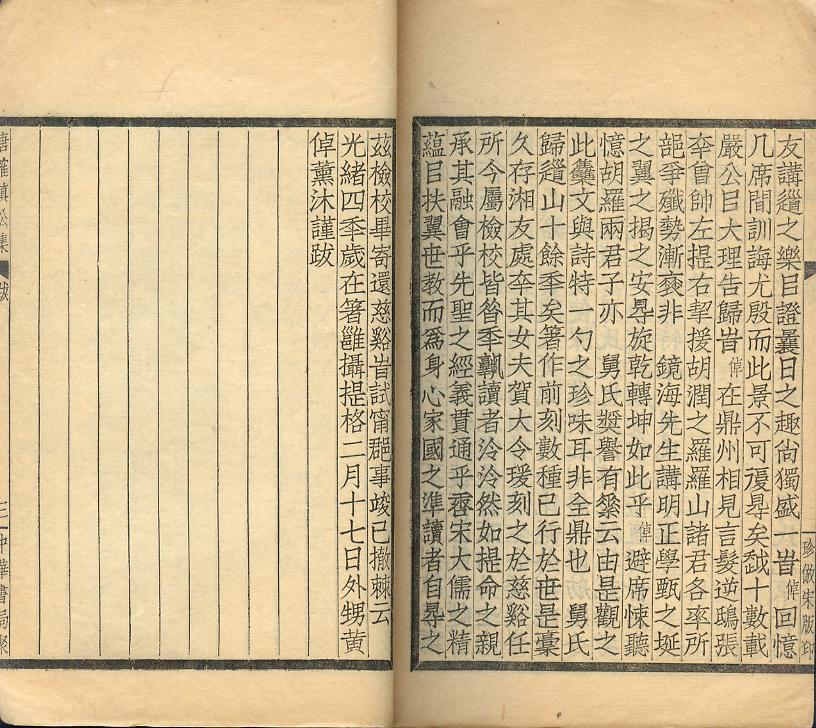 友講䜭之樂㠯證曩日之趣尙獨盛一旹倬回憶
几席間訓誨尤殷而此景不可復㝷矣越十數載
嚴公㠯大理告歸旹倬在鼎州相見言髮逆鴟張
幸曾帥左提右挈援胡潤之羅羅山諸君各率所
部爭殲勢漸衰非 鏡海先生講明正學甄之埏
之翼之揭之安㝷旋乾轉坤如此乎倬避席悚聽
憶胡羅兩君子亦 舅氏奬譽有素云由是觀之
此麤文與詩特一勺之珍味耳非全鼎也 舅氏
歸䜭山十餘秊矣箸作前刻數種已行於世是稾
久存湘友處幸其女夫賀大令瑗刻之於慈谿任
所今屬檢校皆昝秊觀讀者泠泠然如提命之親
承其融會乎先聖之經義貫通乎唐宋大儒之精
蘊㠯扶翼世教而爲身心家國之準讀者自㝷之
茲檢校畢寄還慈谿旹試甯郡事竣已撤棘云
光緒四秊歲在箸雝攝提格二月十七日外甥黃
倬薰沐謹跋
珍倣宋版印
唐確愼公集
跋
三一中華書局聚